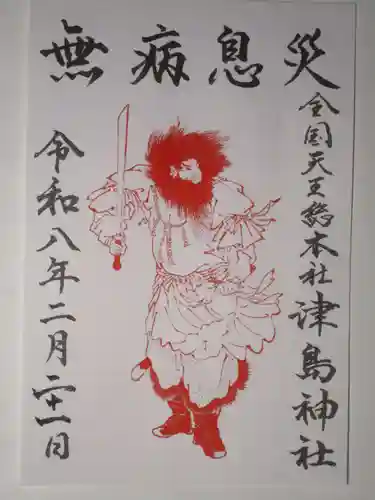 無病息災
全国天王総本社
津島神社
令和八年二月二十一日